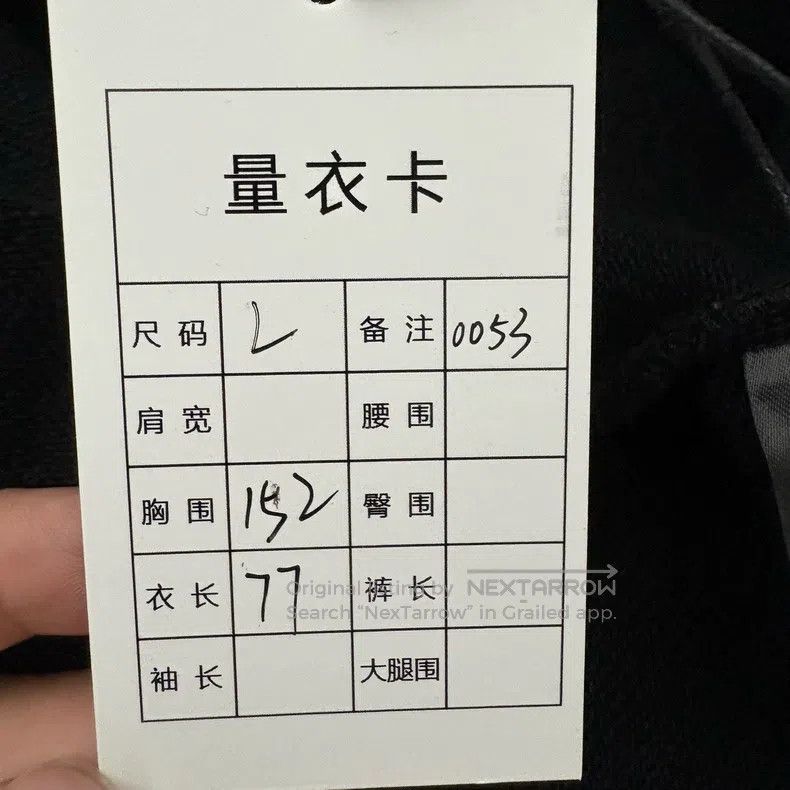 量衣卡
尺码 L 备注 0053
肩宽 腰围
胸围 152 臀围
衣长 77 裤长
袖长 大腿围
Original listing by NEXTARROW
Search "NexTarrow" in Grailed app.